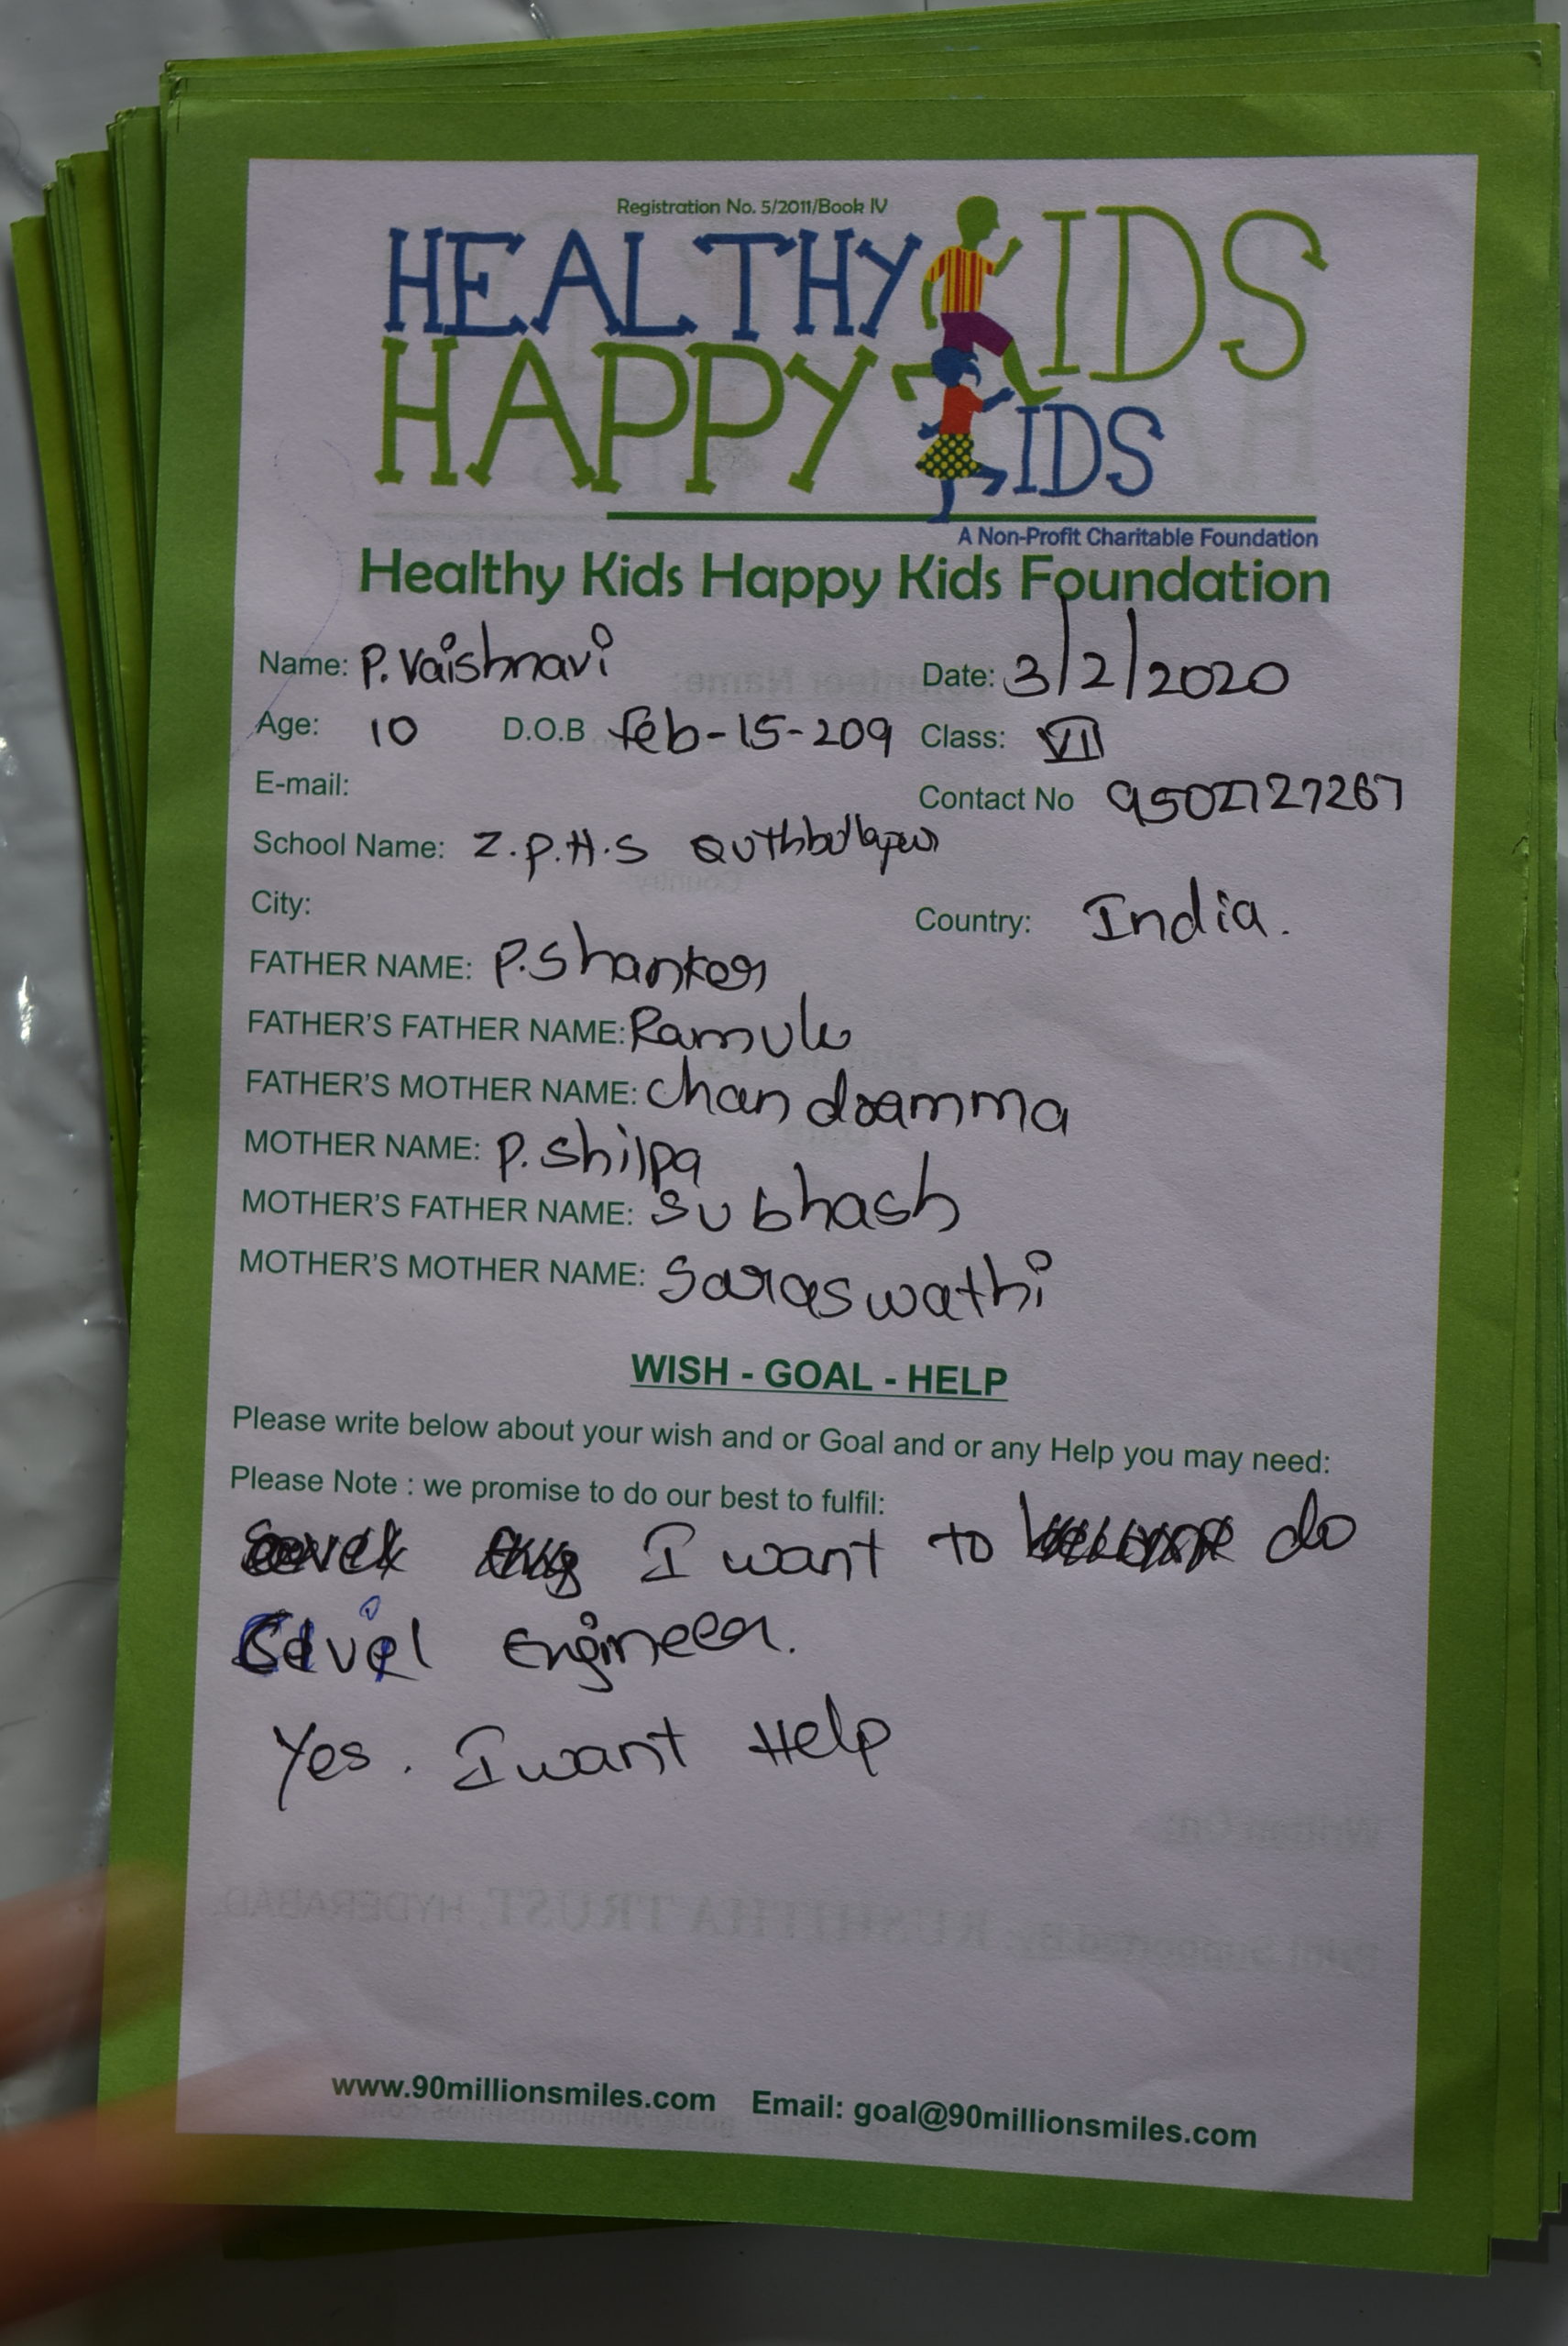 Registration No. 5/2011/Book IV
HEALTHY KIDS
HAPPY KIDS
A Non-Profit Charitable Foundation
Healthy Kids Happy Kids Foundation
Name: P. Vaishnavi Date: 3/2/2020
Age: 10 D.O.B feb-15-209 Class: VII
E-mail: Contact No
School Name: Z.P.H.S Quthbullapur
City: Country: India.
FATHER NAME: P. Shanker
FATHER'S FATHER NAME: Ramulu
FATHER'S MOTHER NAME: Chandramma
MOTHER NAME: P. Shilpa
MOTHER'S FATHER NAME: Subhash
MOTHER'S MOTHER NAME: Saraswathi
WISH - GOAL - HELP
Please write below about your wish and or Goal and or any Help you may need:
Please Note : we promise to do our best to fulfil:
I want to do
Civil Engineer.
Yes. I want Help
www.90millionsmiles.com Email: goal@90millionsmiles.com